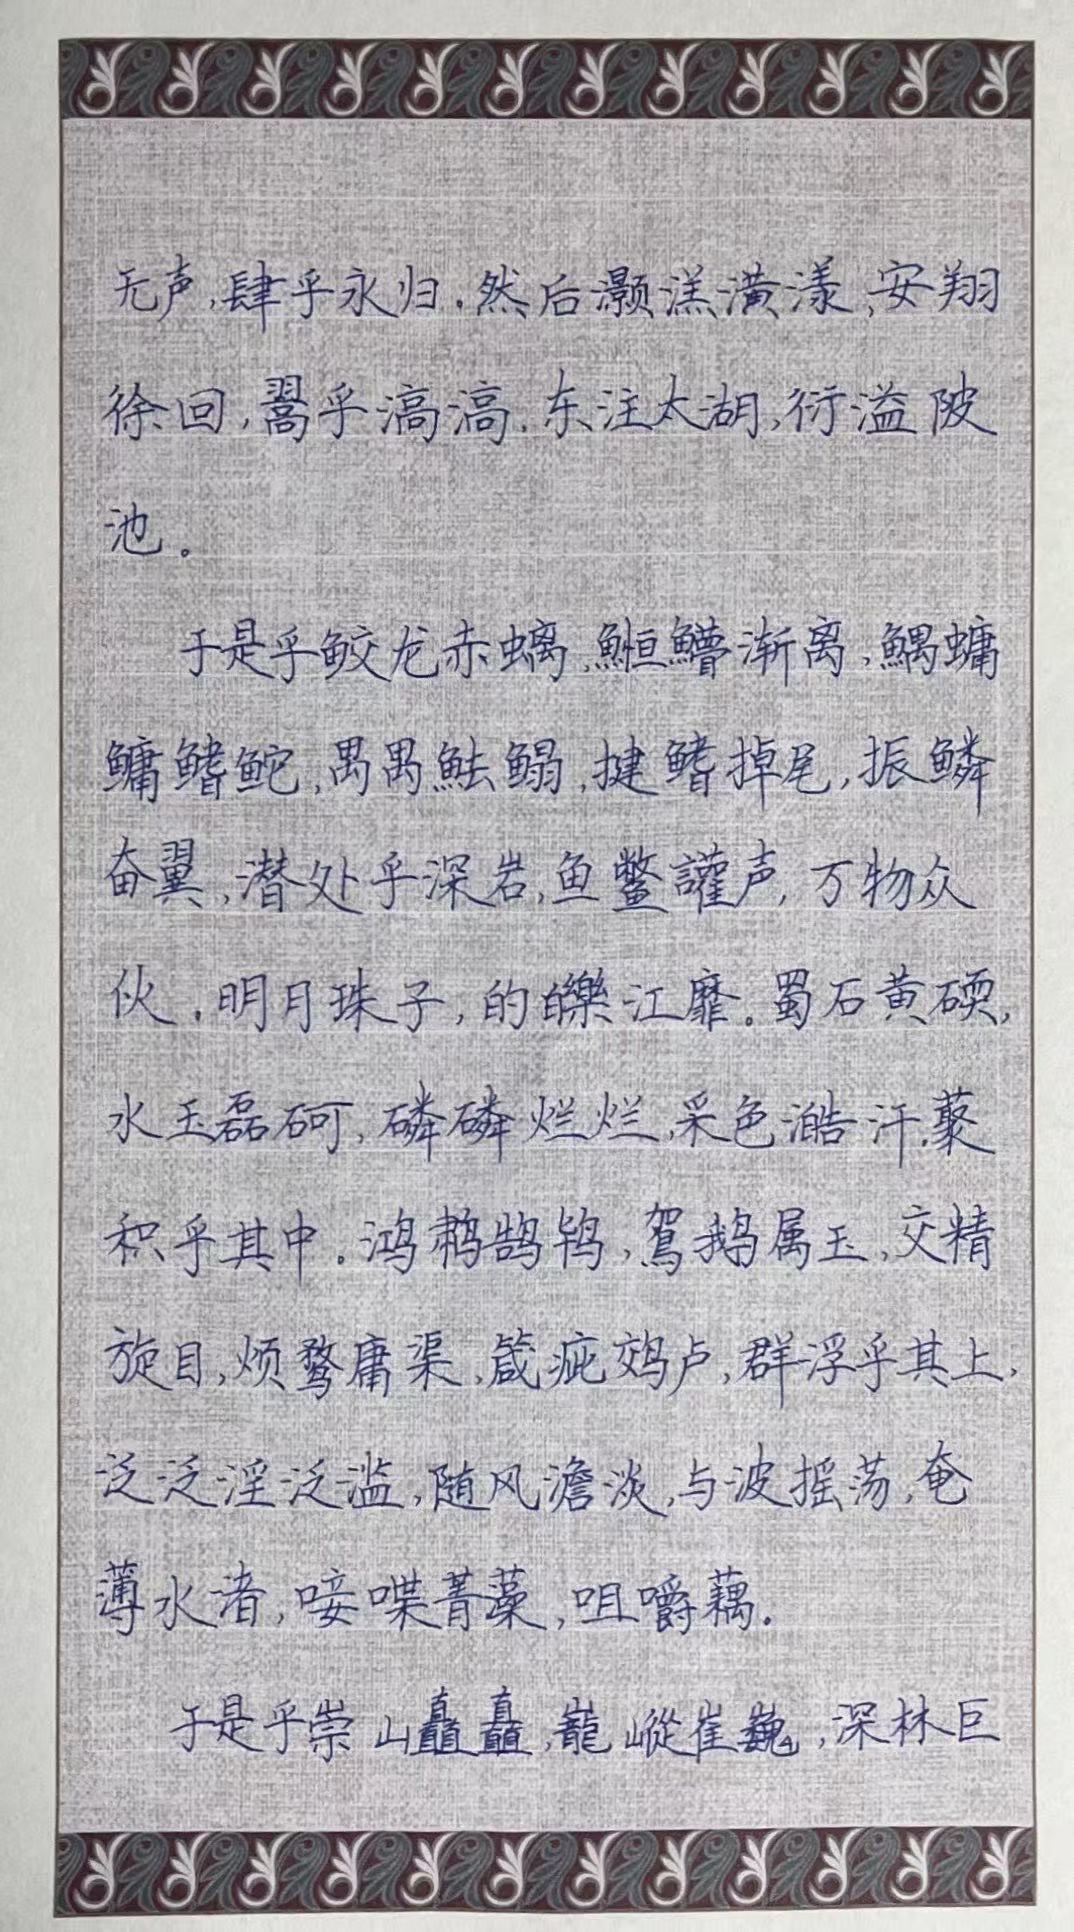 无声,肆乎永归.然后灏溔潢漾,安翔
徐回,翯乎滈滈.东注太湖,衍溢陂
池。
于是乎鲛龙赤螭,䱎䲛渐离,鰅鳙
鳙鳍鮀,禺禺魼鳎,揵鳍掉尾,振鳞
奋翼,潜处乎深岩,鱼鳖讙声,万物众
伙.明月珠子,的皪江靡。蜀石黄碝,
水玉磊砢,磷磷烂烂,采色澔汗,藂
积乎其中.鸿鹔鹄鸨,鴐鹅属玉,交精
旋目,烦鹜庸渠,箴疵䴔卢,群浮乎其上,
泛泛淫泛滥,随风澹淡,与波摇荡,奄
薄水渚,唼喋菁藻,咀嚼藕.
于是乎崇山矗矗,巃嵷崔巍,深林巨